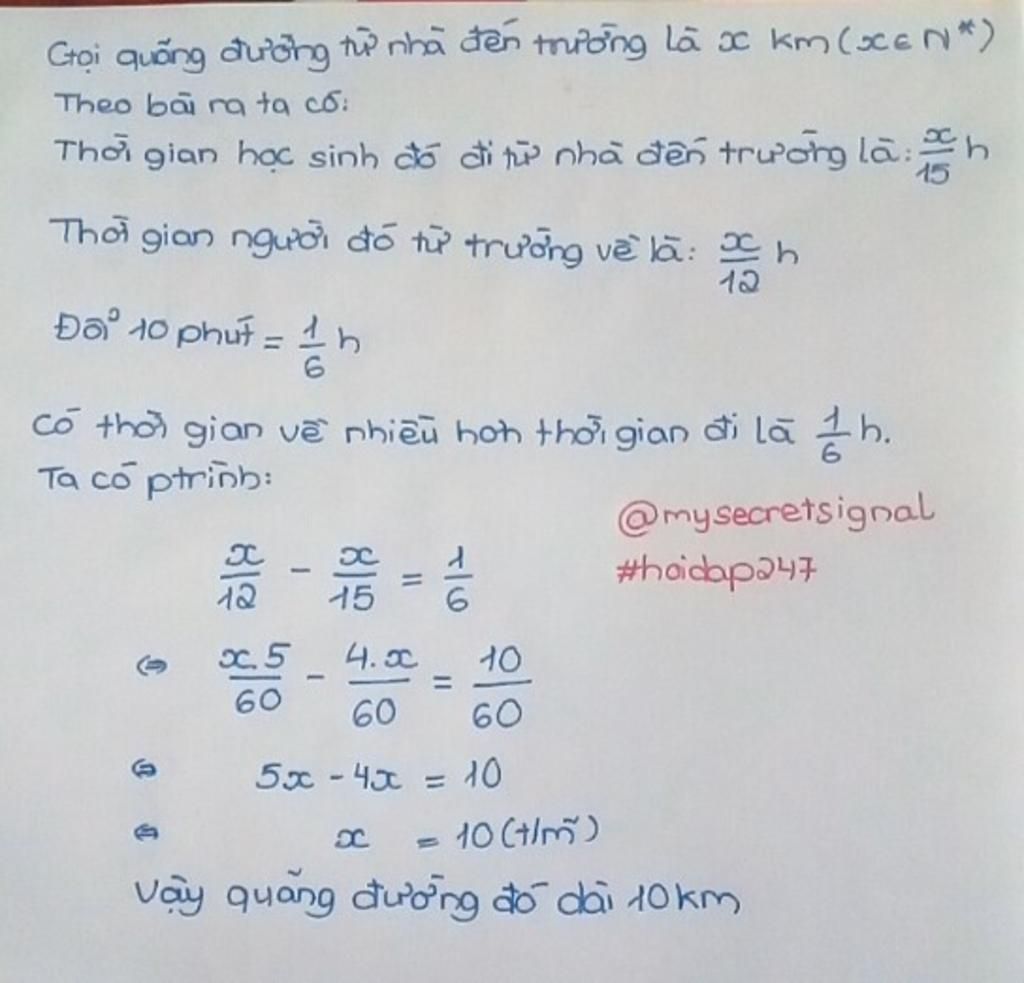 Gọi quãng đường từ nhà đến trường là x km (x ∈ N*)
Theo bài ra ta có:
Thời gian học sinh đó đi từ nhà đến trường là: x/15 h
Thời gian người đó từ trường về là: x/12 h
Đổi 10 phút = 1/6 h
Có thời gian về nhiều hơn thời gian đi là 1/6 h.
Ta có ptrình:
@mysecretsignal
#hoidap247
x/12 - x/15 = 1/6
⇔ x.5/60 - 4.x/60 = 10/60
⇔ 5x - 4x = 10
⇔ x = 10 (t/m)
Vậy quãng đường đó dài 10km